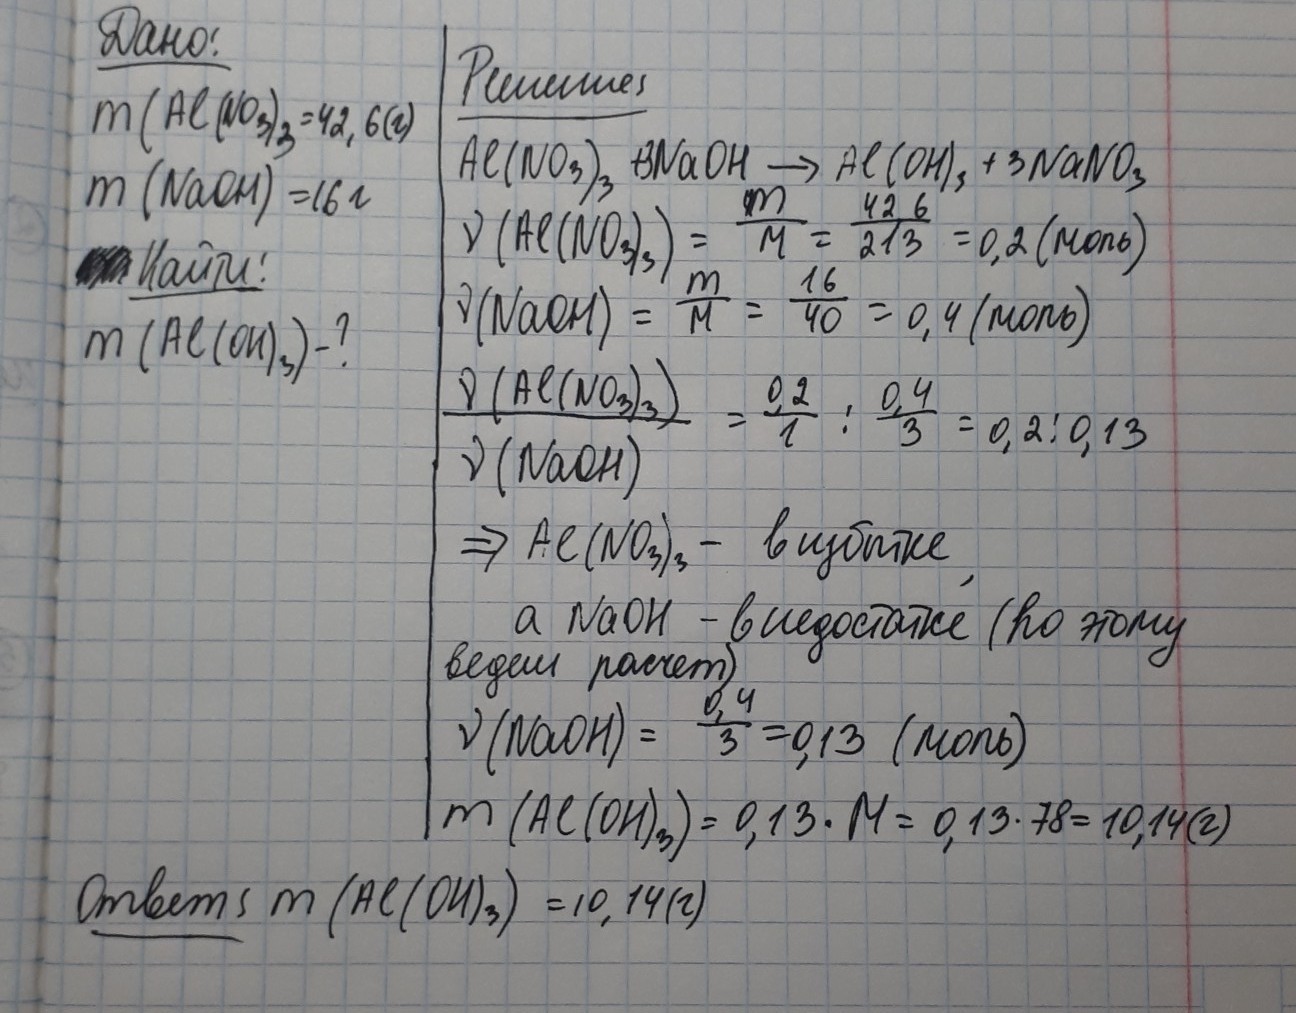 Дано:
m(Al(NO₃)₃=42,6(г)
m(NaOH)=16г
Найти:
m(Al(OH)₃)-?
Решение:
Al(NO₃)₃+3NaOH → Al(OH)₃+3NaNO₃
ν(Al(NO₃)₃) = m/M = 42,6/213 = 0,2(моль)
ν(NaOH) = m/M = 16/40 = 0,4(моль)
ν(Al(NO₃)₃)/ν(NaOH) = 0,2/1 : 0,4/3 = 0,2:0,13
⇒ Al(NO₃)₃ - в избытке,
а NaOH - в недостатке (по этому
ведем расчет)
ν(NaOH) = 0,4/3 = 0,13 (моль)
m(Al(OH)₃) = 0,13·M = 0,13·78 = 10,14(г)
Ответ: m(Al(OH)₃) = 10,14(г)